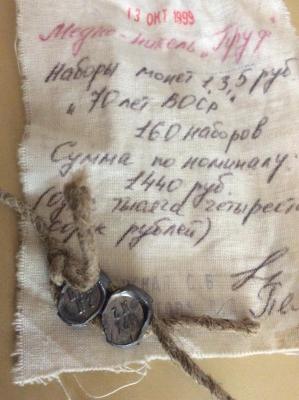 13 ОКТ 1999
Медно-никель „Пруф"
Наборы монет 1,3,5 руб.
„70 лет ВОСР"
160 наборов
Сумма по номиналу:
1440 руб.
тысяча четыреста
сорок рублей)
С.Б